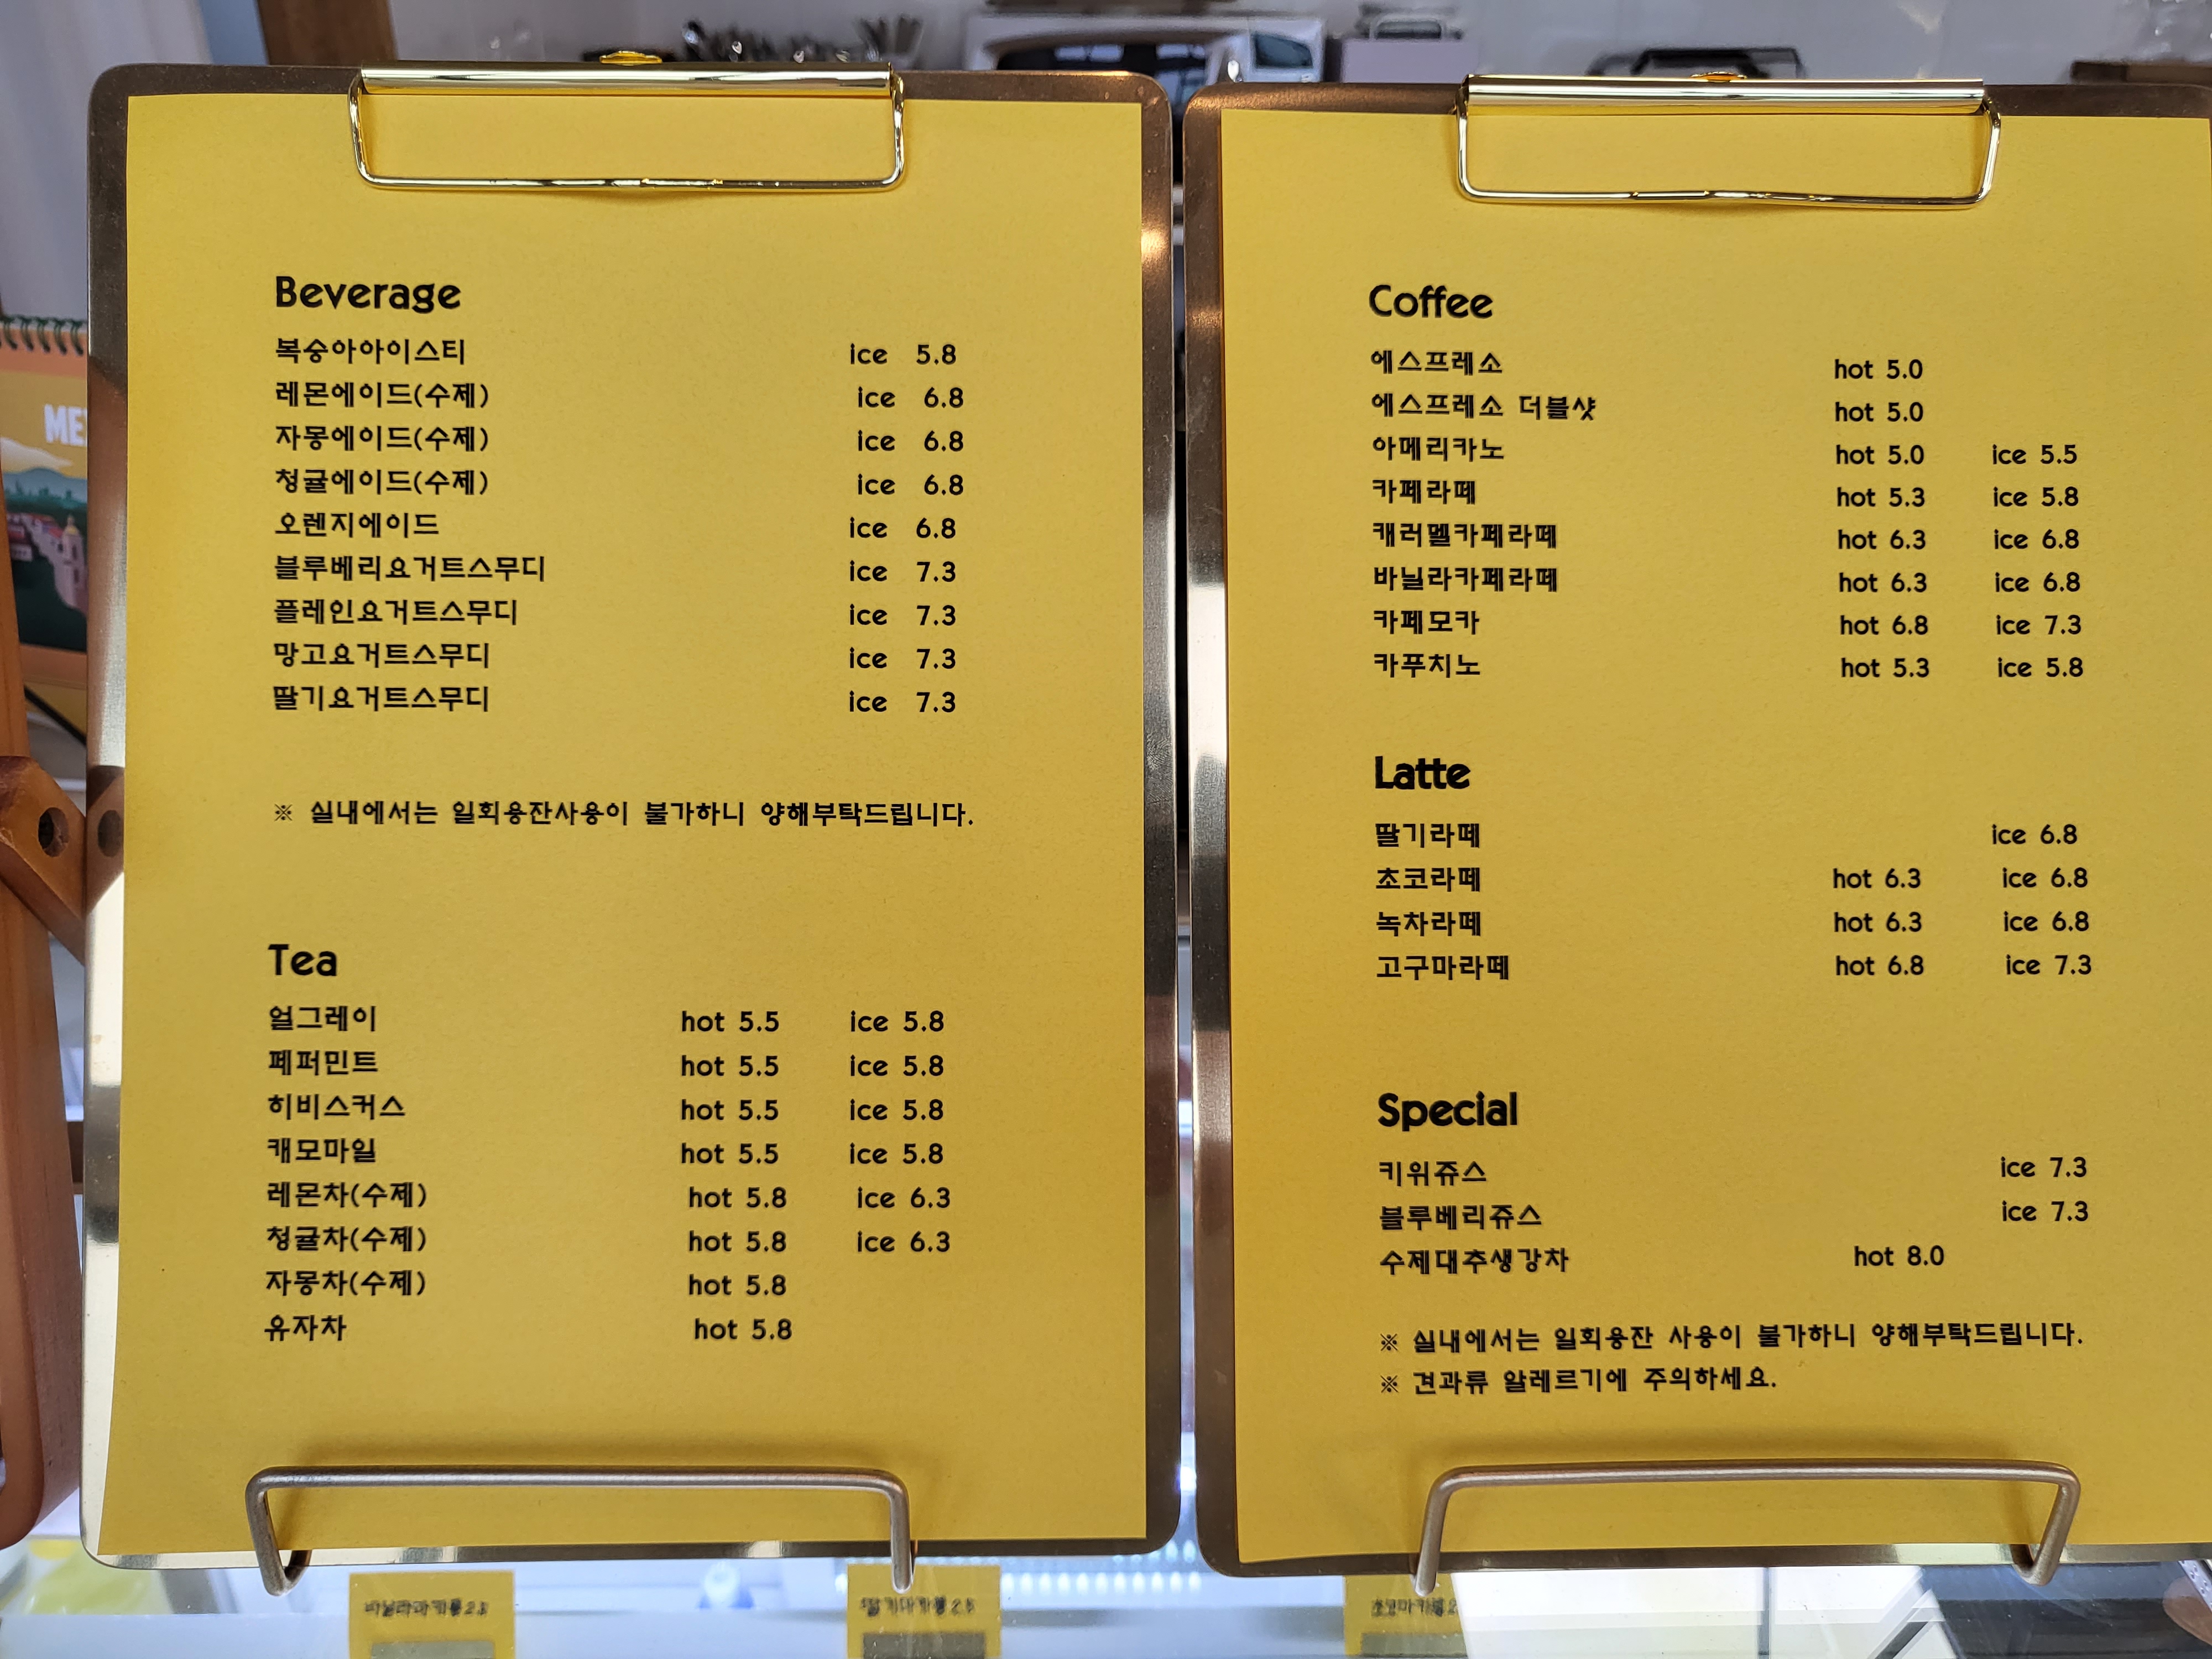 Beverage
복숭아아이스티 ice 5.8
레몬에이드(수제) ice 6.8
자몽에이드(수제) ice 6.8
청귤에이드(수제) ice 6.8
오렌지에이드 ice 6.8
블루베리요거트스무디 ice 7.3
플레인요거트스무디 ice 7.3
망고요거트스무디 ice 7.3
딸기요거트스무디 ice 7.3
※ 실내에서는 일회용잔사용이 불가하니 양해부탁드립니다.
Tea
얼그레이 hot 5.5 ice 5.8
페퍼민트 hot 5.5 ice 5.8
히비스커스 hot 5.5 ice 5.8
캐모마일 hot 5.5 ice 5.8
레몬차(수제) hot 5.8 ice 6.3
청귤차(수제) hot 5.8 ice 6.3
자몽차(수제) hot 5.8
유자차 hot 5.8
Coffee
에스프레소 hot 5.0
에스프레소 더블샷 hot 5.0
아메리카노 hot 5.0 ice 5.5
카페라떼 hot 5.3 ice 5.8
캐러멜카페라떼 hot 6.3 ice 6.8
바닐라카페라떼 hot 6.3 ice 6.8
카페모카 hot 6.8 ice 7.3
카푸치노 hot 5.3 ice 5.8
Latte
딸기라떼 ice 6.8
초코라떼 hot 6.3 ice 6.8
녹차라떼 hot 6.3 ice 6.8
고구마라떼 hot 6.8 ice 7.3
Special
키위쥬스 ice 7.3
블루베리쥬스 ice 7.3
수제대추생강차 hot 8.0
※ 실내에서는 일회용잔 사용이 불가하니 양해부탁드립니다.
※ 견과류 알레르기에 주의하세요.